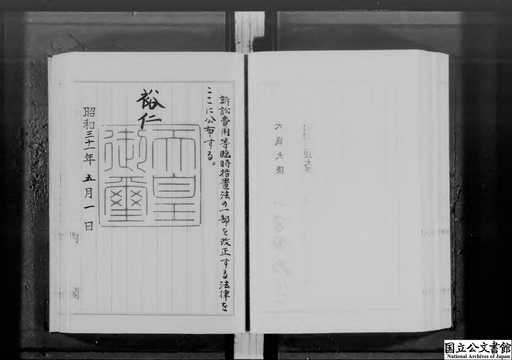 訴訟費用等臨時措置法の一部を改正する法律を
ここに公布する。
裕仁
天皇
御璽
昭和三十一年五月一日
大蔵大臣
国立公文書館
National Archives of Japan